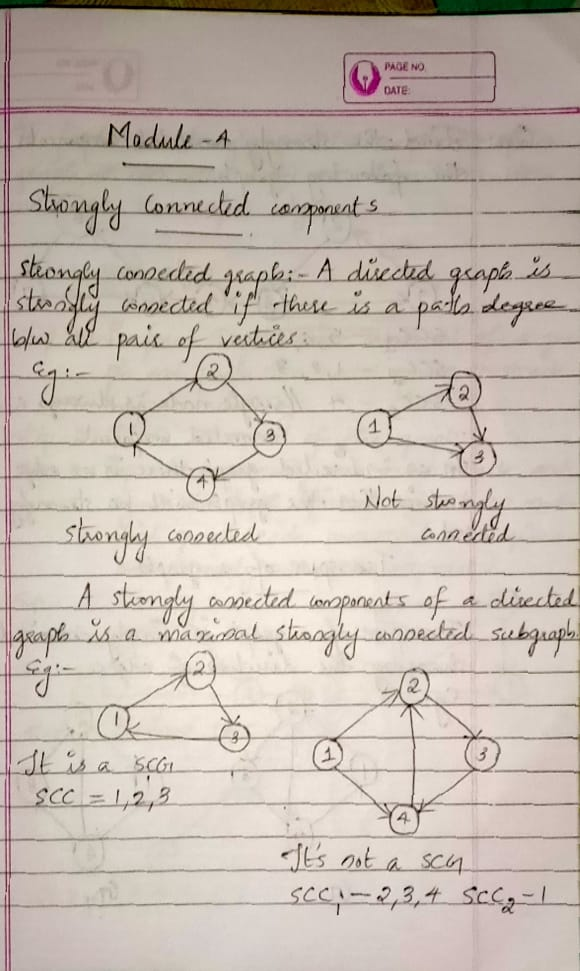 PAGE NO.
DATE:
Module - 4
Strongly Connected components
Strongly connected graph:- A directed graph is
strongly connected if there is a path degree
b/w all pair of vertices.
Eg:-
2
1
3
4
1
2
3
Strongly connected
Not strongly
connected
A strongly connected components of a directed
graph is a maximal strongly connected subgraph.
Eg:-
2
1
3
2
1
3
4
It is a SCG
SCC = 1,2,3
It's not a SCG
SCC1 - 2,3,4 SCC2 - 1